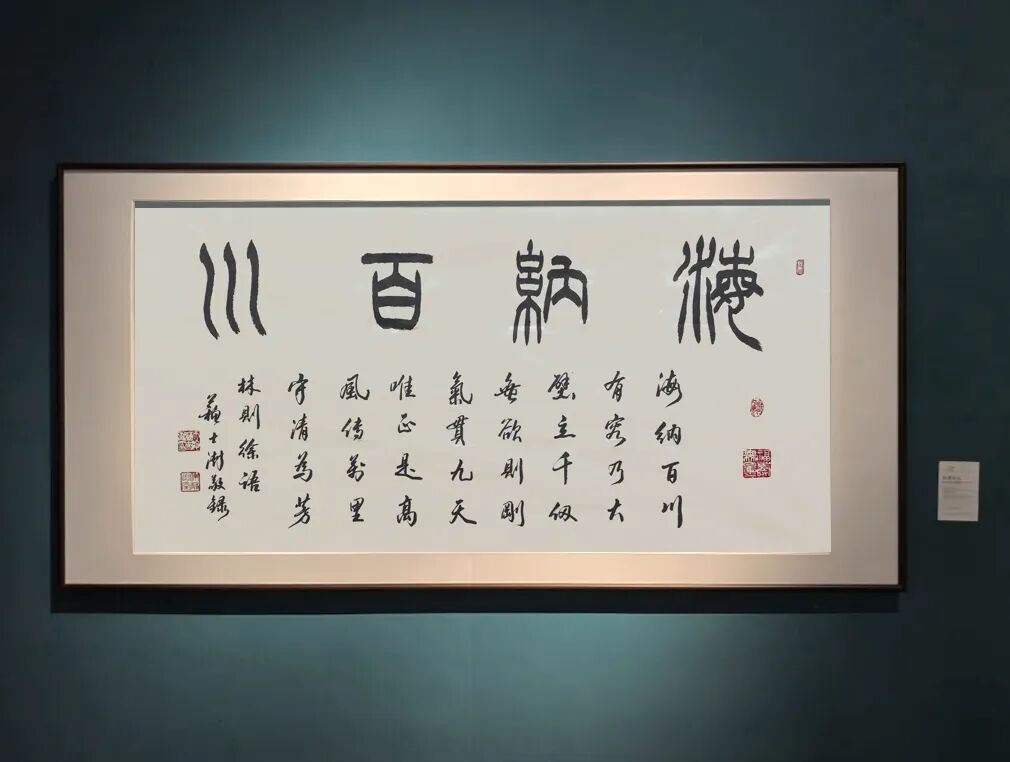 海納百川
海納百川
有容乃大
壁立千仞
無欲則剛
氣貫九天
唯正是高
風傳萬里
守清為芳
林則徐語
蘇士澍敬錄